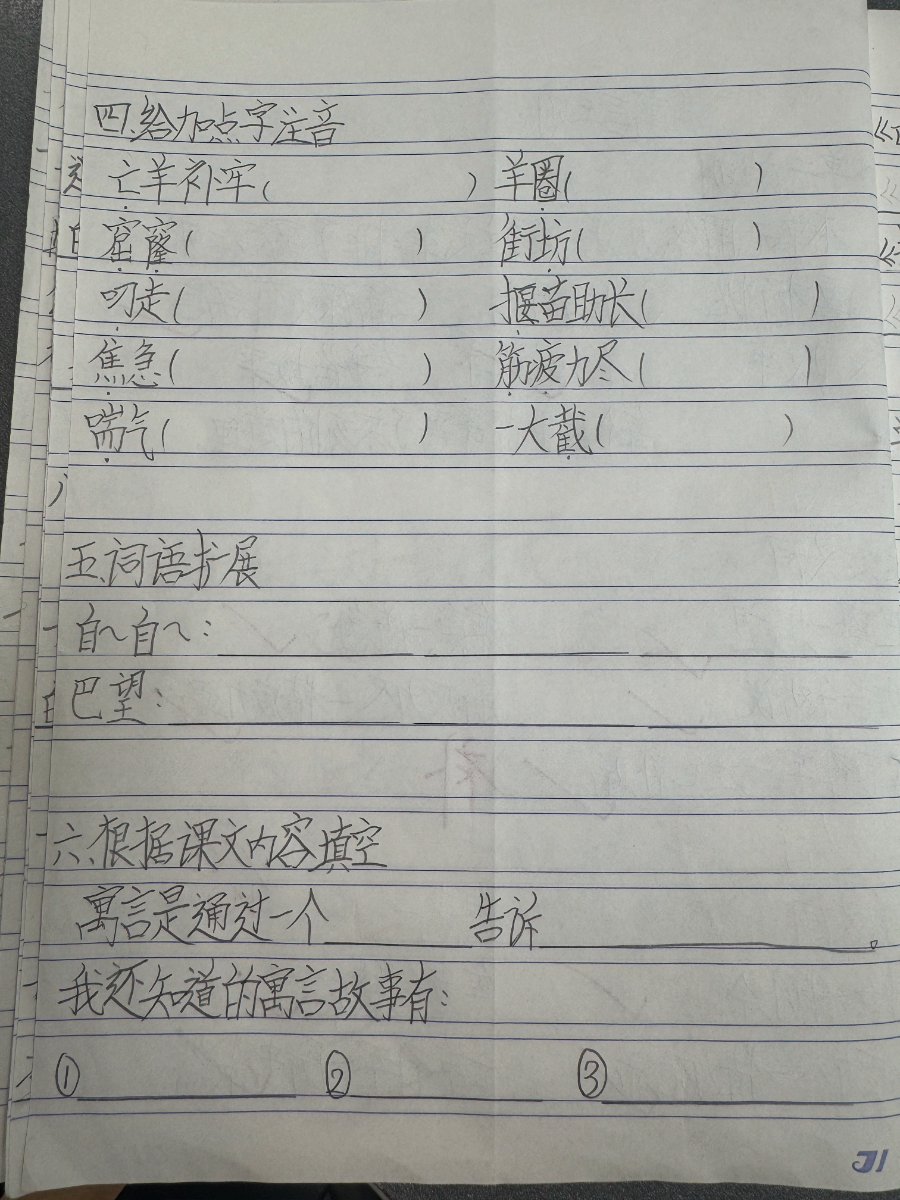 四.给加点字注音
亡羊补牢( ) 羊圈( )
窟窿( ) 街坊( )
叼走( ) 揠苗助长( )
焦急( ) 筋疲力尽( )
喘气( ) 一大截( )
五.词语扩展
自~自~:
巴望:
六.根据课文内容填空
寓言是通过一个 告诉 。
我还知道的寓言故事有:
① ② ③